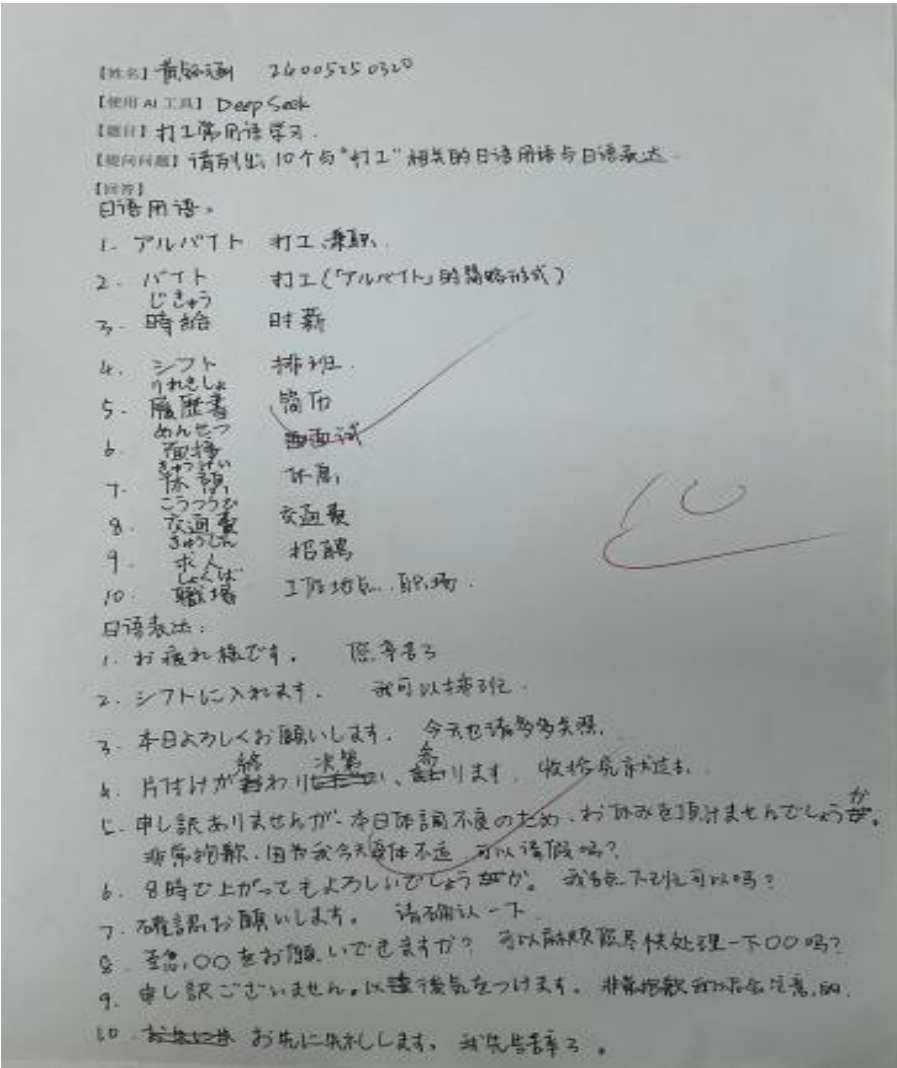 【姓名】黄 涵 24005250320
【使用 AI 工具】Deep Seek
【题目】打工常用语学习.
【提问问题】请列出10个与“打工”相关的日语用语与日语表达.
【回答】
日语用语。
1. アルバイト 打工、兼职、
2. バイト 打工(「アルバイト」的简略形式)
じきゅう
3. 時給 时薪
4. シフト 排班.
りれきしょ
5. 履歴書 简历
めんせつ
6. 面接 面试
きゅうけい
7. 休憩 休息,
こうつうひ
8. 交通費 交通费
きゅうじん
9. 求人 招聘
しょくば
10. 職場 工作地点、职场.
日语表达:
1. お疲れ様です. 您辛苦了
2. シフトに入れます. 我可以排班.
3. 本日よろしくお願いします. 今天也请多多关照.
終 次第 参
4. 片付けが わり 、 ります. 收拾完就过去.
5. 申し訳ありませんが、本日体調不良のため、お休みを頂けませんでしょうか。
非常抱歉,因为我今天身体不适,可以请假吗?
6. 8時で上がってもよろしいでしょうか。 我8点下班可以吗?
7. 確認お願いします。 请确认一下
8. 至急、〇〇をお願いできますか? 可以麻烦您尽快处理一下〇〇吗?
9. 申し訳ございません。以後気をつけます. 非常抱歉 我以后会注意的.
10. お先に失礼します. 我先告辞了。
10